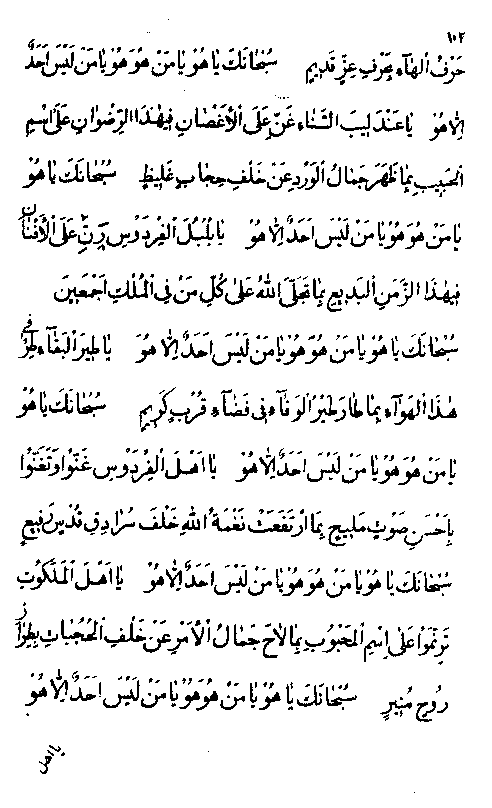 ١٠٢
حَرْفُ الهَآءِ بِحَرْفِ عِزٍّ قَدِيمٍ سُبْحَانَكَ يَا هُوَ يَا مَنْ هُوَ هُوَ يَا مَنْ لَيْسَ اَحَدٌ
اِلَّا هُوَ يَا عَنْدَلِيبَ الثَّنَاءِ غَنِّ عَلَى الْأَغْصَانِ فِيهٰذَا الرِّضْوَانِ عَلَى اسْمِ
الْحَبِيبِ بِمَا ظَهَرَ جَمَالُ الْوَرْدِ عَنْ خَلْفِ حِجَابٍ غَلِيظٍ سُبْحَانَكَ يَا هُوَ
يَا مَنْ هُوَ هُوَ يَا مَنْ لَيْسَ اَحَدٌ اِلَّا هُوَ يَا بُلْبُلَ الْفِرْدَوْسِ رَنِّ عَلَى الْأَفْنَانِ
فِيهٰذَا الزَّمَنِ الْبَدِيعِ بِمَا تَجَلَّى اللّٰهُ عَلَى كُلِّ مَنْ فِى الْمُلْكِ اَجْمَعِينَ
سُبْحَانَكَ يَا هُوَ يَا مَنْ هُوَ هُوَ يَا مَنْ لَيْسَ اَحَدٌ اِلَّا هُوَ يَا طَيْرَ الْبَقَآءِ طِرْ فِى
هٰذَا الْهَوَآءِ بِمَا طَارَ طَيْرُ الْوَفَآءِ فِى فَضَآءِ قُرْبٍ كَرِيمٍ سُبْحَانَكَ يَا هُوَ
يَا مَنْ هُوَ هُوَ يَا مَنْ لَيْسَ اَحَدٌ اِلَّا هُوَ يَا اَهْلَ الْفِرْدَوْسِ غَنُّوا وَ تَغَنَّوْا
بِاَحْسَنِ صَوْتٍ مَلِيحٍ بِمَا ارْتَفَعَتْ نَغْمَةُ اللّٰهِ خَلْفَ سُرَادِقِ قُدْسٍ رَفِيعٍ
سُبْحَانَكَ يَا هُوَ يَا مَنْ هُوَ هُوَ يَا مَنْ لَيْسَ اَحَدٌ اِلَّا هُوَ يَا اَهْلَ الْمَلَكُوتِ
تَرَنَّمُوا عَلَى اسْمِ الْمَحْبُوبِ بِمَا لَاحَ جَمَالُ الْأَمْرِ عَنْ خَلْفِ الْحُجُبَاتِ بِطِرَازِ
رُوحٍ مُنِيرٍ سُبْحَانَكَ يَا هُوَ يَا مَنْ هُوَ هُوَ يَا مَنْ لَيْسَ اَحَدٌ اِلَّا هُوَ
يا اهل